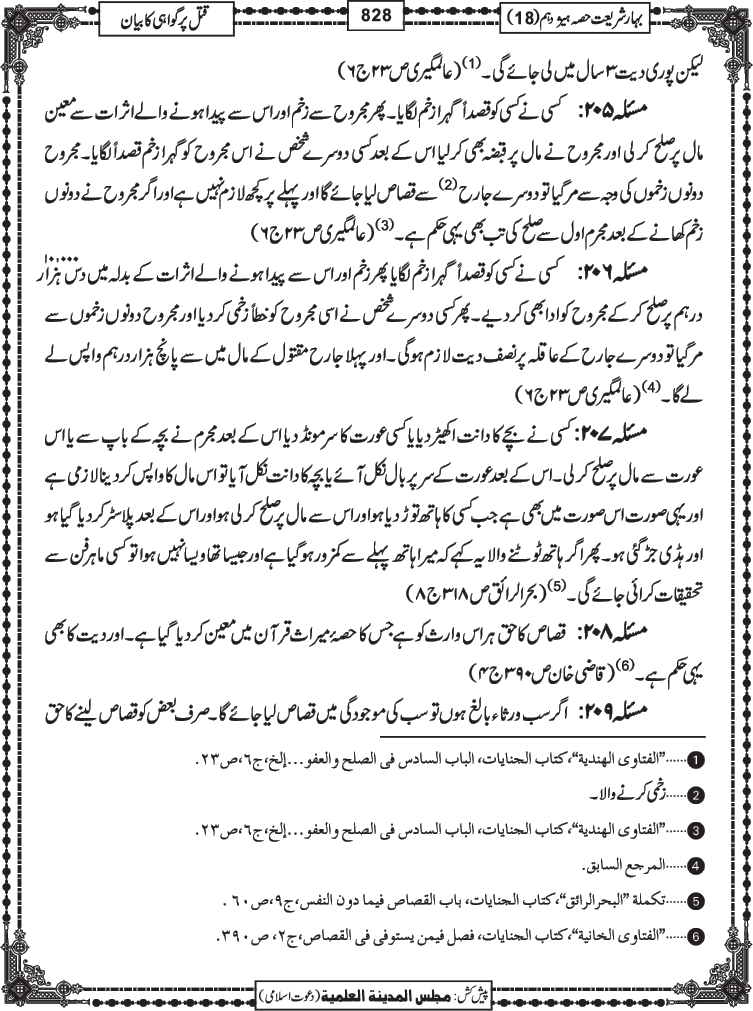 بہارِ شریعت حصہ ہیژدہم (18)
828
قتل پر گواہی کا بیان
لیکن پوری دیت ۳ سال میں لی جائے گی۔(1) (عالمگیری ص ۲۳ ج ۶)
مسئلہ ۲۰۵: کسی نے کسی کو قصداً گہرا زخم لگایا۔ پھر مجروح سے زخم اور اس سے پیدا ہونے والے اثرات سے معین
مال پر صلح کر لی اور مجروح نے مال پر قبضہ بھی کر لیا اس کے بعد کسی دوسرے شخص نے اس مجروح کو گہرا زخم قصداً لگایا۔ مجروح
دونوں زخموں کی وجہ سے مر گیا تو دوسرے جارح(2) سے قصاص لیا جائے گا اور پہلے پر کچھ لازم نہیں ہے اور اگر مجروح نے دونوں
زخم کھانے کے بعد مجرم اول سے صلح کی تب بھی یہی حکم ہے۔(3) (عالمگیری ص ۲۳ ج ۶)
مسئلہ ۲۰۶: کسی نے کسی کو قصداً گہرا زخم لگایا پھر زخم اور اس سے پیدا ہونے والے اثرات کے بدلہ میں دس ہزار ۱۰,۰۰۰
درہم پر صلح کر کے مجروح کو ادا بھی کر دیے۔ پھر کسی دوسرے شخص نے اسی مجروح کو خطأً زخمی کر دیا اور مجروح دونوں زخموں سے
مر گیا تو دوسرے جارح کے عاقلہ پر نصف دیت لازم ہوگی۔ اور پہلا جارح مقتول کے مال میں سے پانچ ہزار درہم واپس لے
لے گا۔(4) (عالمگیری ص ۲۳ ج ۶)
مسئلہ ۲۰۷: کسی نے بچے کا دانت اکھیڑ دیا یا کسی عورت کا سر مونڈ دیا اس کے بعد مجرم نے بچہ کے باپ سے یا اس
عورت سے مال پر صلح کر لی۔ اس کے بعد عورت کے سر پر بال نکل آئے یا بچہ کا دانت نکل آیا تو اس مال کا واپس کر دینا لازمی ہے
اور یہی صورت اس صورت میں بھی ہے جب کسی کا ہاتھ توڑ دیا ہو اور اس سے مال پر صلح کر لی ہو اور اس کے بعد پلاسٹر کر دیا گیا ہو
اور ہڈی جڑ گئی ہو۔ پھر اگر ہاتھ ٹوٹنے والا یہ کہے کہ میرا ہاتھ پہلے سے کمزور ہو گیا ہے اور جیسا تھا ویسا نہیں ہوا تو کسی ماہر فن سے
تحقیقات کرائی جائے گی۔(5) (بحر الرائق ص ۳۱۸ ج ۸)
مسئلہ ۲۰۸: قصاص کا حق ہر اس وارث کو ہے جس کا حصۂ میراث قرآن میں معین کر دیا گیا ہے۔ اور دیت کا بھی
یہی حکم ہے۔(6) (قاضی خان ص ۳۹۰ ج ۴)
مسئلہ ۲۰۹: اگر سب ورثاء بالغ ہوں تو سب کی موجودگی میں قصاص لیا جائے گا۔ صرف بعض کو قصاص لینے کا حق
1......"الفتاوی الھندیة"، کتاب الجنایات، الباب السادس فی الصلح والعفو...إلخ، ج۶، ص۲۳.
2......زخمی کرنے والا۔
3......"الفتاوی الھندیة"، کتاب الجنایات، الباب السادس فی الصلح والعفو...إلخ، ج۶، ص۲۳.
4......المرجع السابق.
5......تکملة "البحرالرائق"، کتاب الجنایات، باب القصاص فیما دون النفس، ج۹، ص۶۰.
6......"الفتاوی الخانیة"، کتاب الجنایات، فصل فیمن یستوفی فی القصاص، ج۲، ص۳۹۰.
پیش کش: مجلس المدینة العلمیة (دعوت اسلامی)